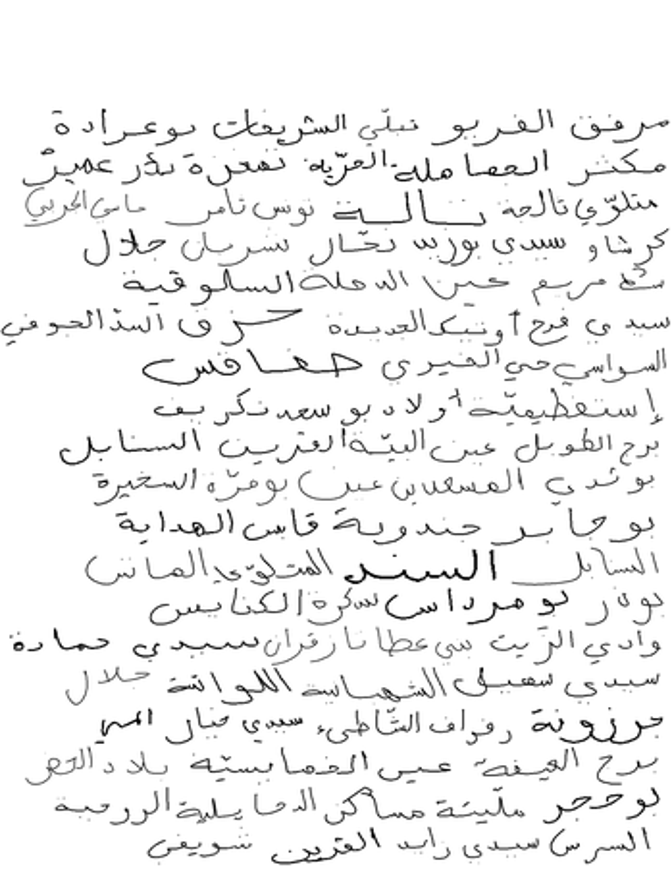 مرفق الغريو نبلّي الشريفات بوعرادة
مكثر الحرّية نفغزة بئر
متلوّي تالجة تالة تونس ثامر
كرشاو سيدي بورييس نخّال شربان جلال
شط مريم عين الدفلة السلوقية
سيدي فرج أوتيك الجديدة حزق السند الجوفي
السواسي حي الخيري صفاقس
إستفطيميّة أولاد بو سعد تكريف
برج الطويل عين البيّة القزيين السنابل
بوندي المسعدين عين بومرّة السخيرة
بو جابر جندوبة قابس الهداية
السنابل السند المتلوّي
بوفار بومرداس سكرة الكنايس
وادي الزّيت بني عطا نا زقران سيدي حمادة
سيدي سهيل الشهبانية اللواتة جلال
جرزونة رفراف الشّاطىء سيدي خيار
برج العيفة عين الخمايسيّة بلاد
بوحجر مليتة مساكن الدخايلية الررمية
السرس سيدي زايد القرين شويفي